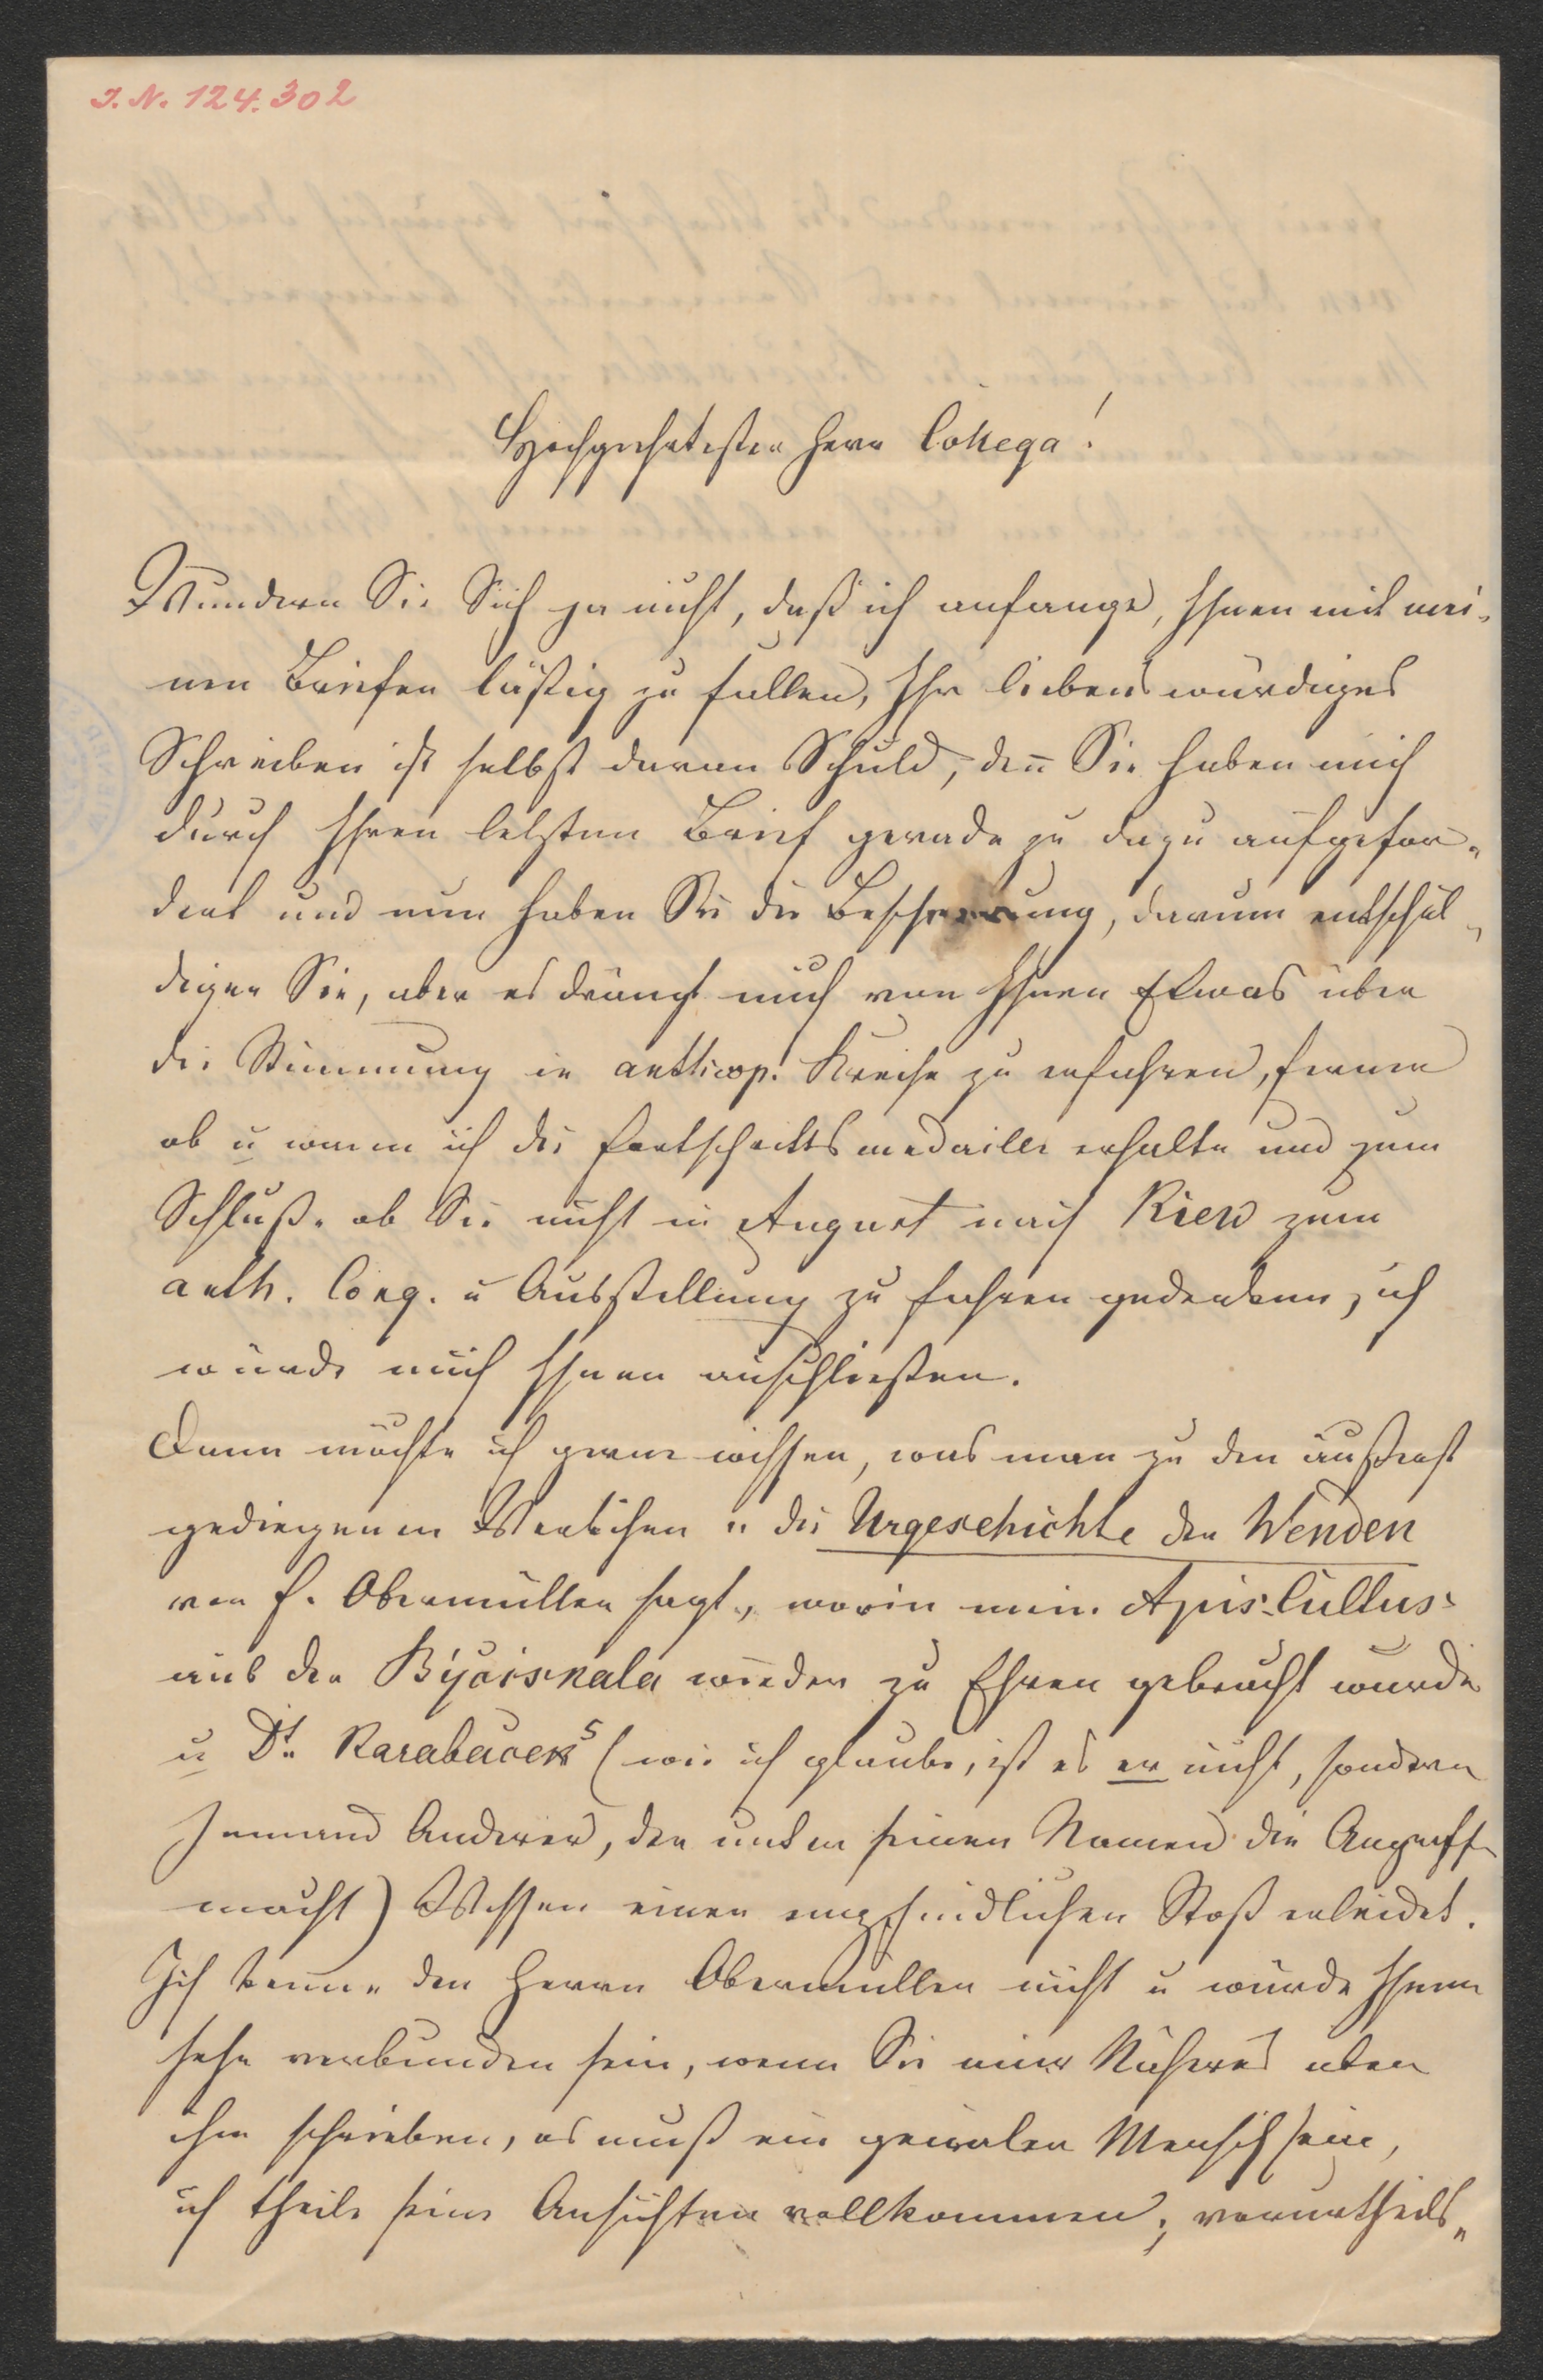 I. N. 124.302
Hochgeehrtester Herr Collega!
Wundern Sie Sich ja nicht, daß ich anfange, Ihnen mit mei-
nen Briefen lästig zu fallen, Ihr liebenswürdiges
Schreiben ist selbst daran Schuld, den̄ Sie haben mich
durch Ihren letzten Brief gerade zu dazu aufgefor-
dert und nun haben Sie die Bescherung, darum entschul-
digen Sie, aber es drängt mich von Ihnen Etwas über
die Stimmung in anthrop. Kreise zu erfahren, ferner
ob u wann ich die Fortschrittsmedaille erhalte und zum
Schluße ob Sie nicht in August nach Kiew zum
anth. Cong. u Ausstellung zu fahren gedenken, ich
würde mich Ihnen anschließen.
Dann möchte ich gerne wissen, was man zu den äußerst
gediegenen Werkchen „ die Urgeschichte der Wenden
von F. Obermüller sagt, worin mein Apis-Cultus
aus der Býčiskála wieder zu Ehren gebracht wurde
u Dr. Karabaceks (wie ich glaube, ist es er nicht, sondern
Jemand Anderer, der unter seinen Namen die Angriffe
macht) Wissen einen empfindlichen Stoß erleidet.
Ich kenne den Herrn Obermüller nicht u würde Ihnen
sehr verbunden sein, wenn Sie mir Näheres über
ihn schrieben, es muß ein genialer Mensch sein,
ich theile seine Ansichten vollkommen; vorurtheils-